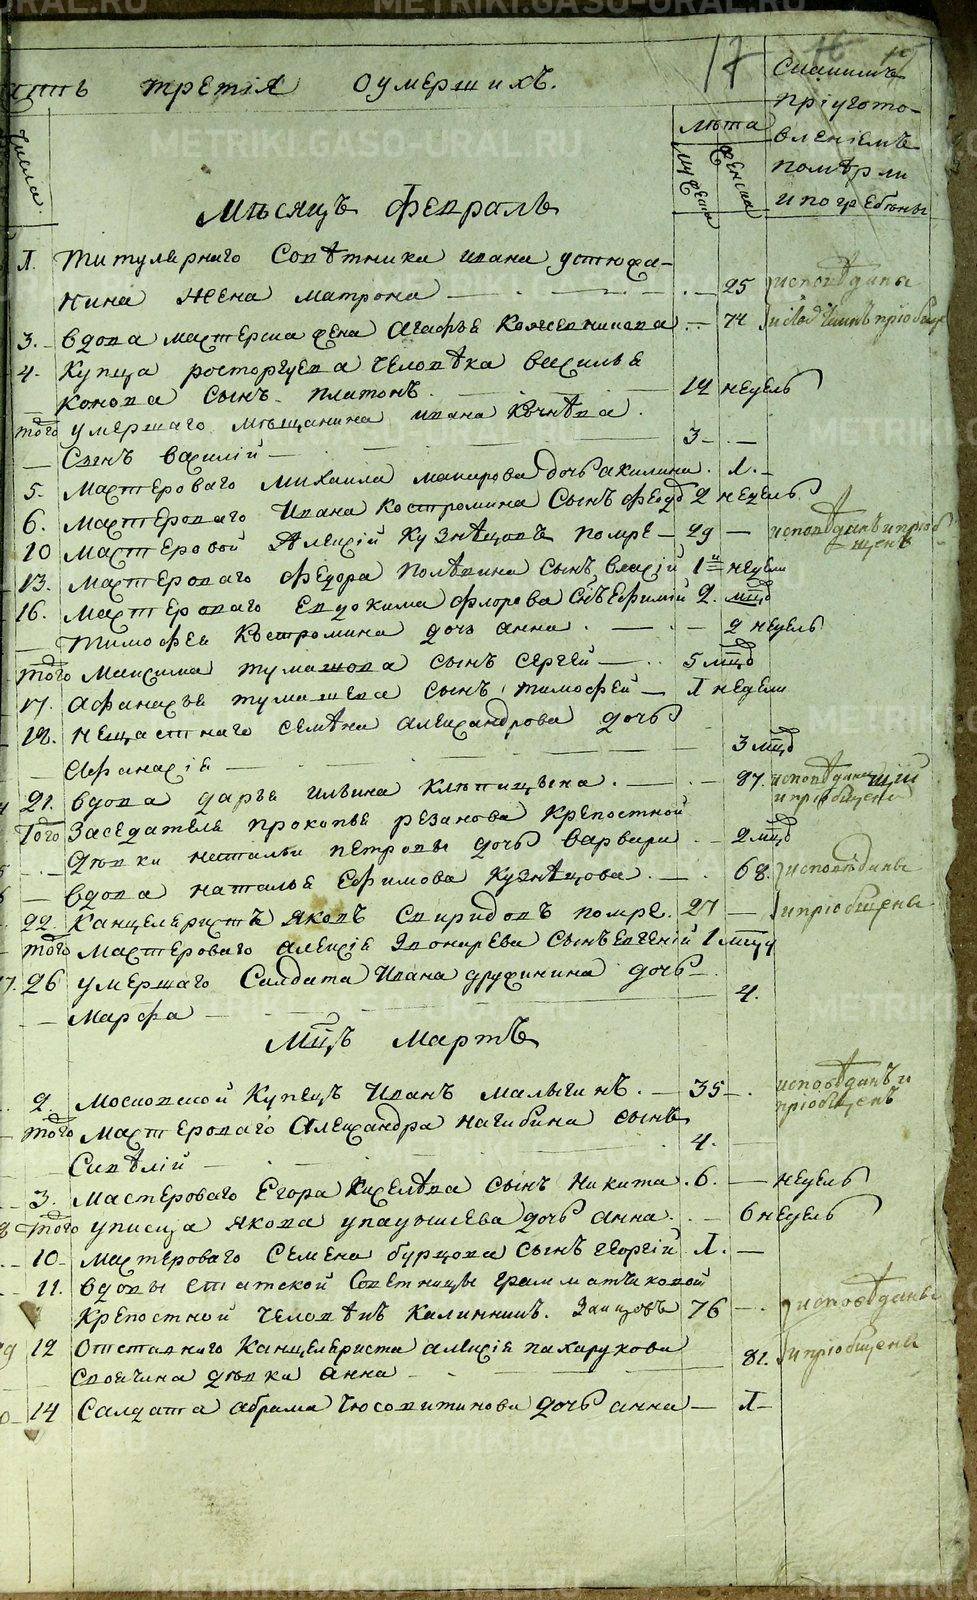 METRIKI.GASO-URAL.RU
17
третія оумершихъ.
числа.
лѣта
мужеска
женска
пріугото-
вленіемъ
померли
и погребены
Мѣсяцъ Февраль
1. Титулярнаго Совѣтника Ивана устюжа-
нина жена матрона 25 исповѣданы
3. вдова мастерска жена Агафья Кожевникова 74
4. Купца расторгуева человѣка василья
конова сынъ платонъ 12 недель
того умершаго мѣщанина ивана
Сынъ василій 3
5. Мастероваго Михаила макарова дочь акилина 1.
6. Мастероваго Ивана Костромина Сынъ феод 2 недель
10 Мастеровой Алексій Кузнѣцовъ помре 29
13. Мастероваго федора полѣвина сынъ власій 1 недели
16. Мастероваго Евдокима флорова Сынъ Ефимій 2. мцд
Тимофея Костромина дочь анна 2 недель
того Максима тумашова сынъ сергей 5 мцд
17. Афанасья тумашева сынъ тимофей 1 недели
18. нещастнаго семена александрова дочь
Афанасія 3 мцд
21. вдова дарья ильина Клепищева 87. исповѣдана
и пріобщена
того Заседателя прокопья резанова Крепостной
дѣвки натальи петровы дочь варвара 2 мцд
вдова наталья Ефимова Кузнѣцова 68. исповѣданы
22. Канцеляристъ Яковъ Спиридовъ помре. 27 и пріобщены
того мастероваго алексія Сынъ Евгеній 1 мцд
26 умершаго Салдата Ивана дружинина дочь
Марфа 4.
Мцъ Мартъ
2. Московской Купецъ Иванъ Малыгинъ. 35 исповѣданъ и
пріобщенъ
того Мастероваго Александра нагибина сынъ
Савѣлій 4.
3. Мастероваго Егора Киселѣва сынъ никита 6. недель
того уписца якова дочь анна 6 недель
10. мастероваго Семена бурцова Сынъ георгій 1.
11. вдовы статской Советницы грамматчиковой
Крепостной человѣкъ Калинникъ Заицовъ 76 исповѣданы
12 Отставнаго Канцеляриста алексія пахарукова
своячина дѣвка анна 81. и пріобщены
14 Салдата абрама дочь анна 1